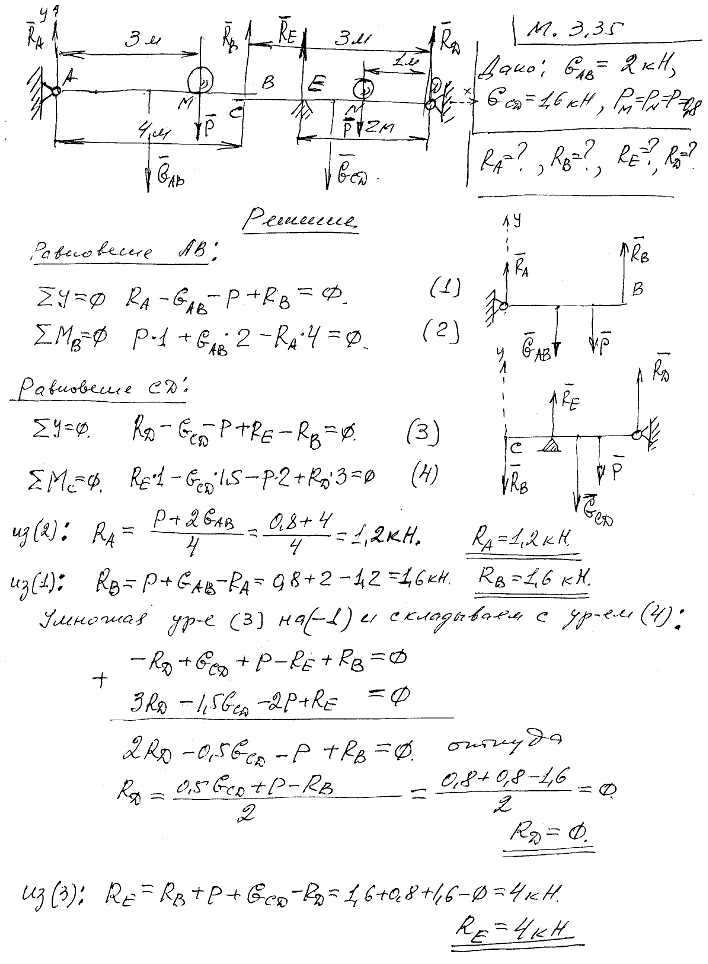 М. 3,35
y
R̄A 3 м R̄B R̄E 3 м R̄D
1 м
A M B E N D x
C
P̄ P̄ 2 м
4 м
ḠAB ḠCD.
Дано: GAB = 2 кН,
GCD = 1,6 кН, PM=PN=P=0,8
RA=?, RB=?, RE=?, RD=?
Решение
Равновесие AB:
ΣY=0 RA – GAB – P + RB = 0. (1)
ΣMB=0 P·1 + GAB·2 – RA·4 = 0. (2)
y
R̄A R̄B
B
ḠAB P̄
Равновесие CD:
ΣY=0. RD – GCD – P + RE – RB = 0. (3)
ΣMC=0. RE·1 – GCD·1,5 – P·2 + RD·3 = 0 (4)
y
R̄E R̄D
C
R̄B P̄
ḠCD
из(2): RA = (P + 2GAB)/4 = (0,8 + 4)/4 = 1,2 кН. RA = 1,2 кН.
из(1): RB = P + GAB – RA = 0,8 + 2 – 1,2 = 1,6 кН. RB = 1,6 кН.
Умножая ур-е (3) на(-1) и складываем с ур-ем (4):
–RD + GCD + P – RE + RB = 0
+
3RD – 1,5GCD – 2P + RE = 0
2RD – 0,5GCD – P + RB = 0. откуда
RD = (0,5GCD + P – RB)/2 = (0,8 + 0,8 – 1,6)/2 = 0.
RD = 0.
из(3): RE = RB + P + GCD – RD = 1,6 + 0,8 + 1,6 – 0 = 4 кН.
RE = 4 кН